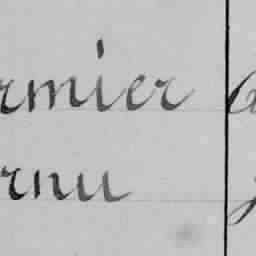 rmier
rnu